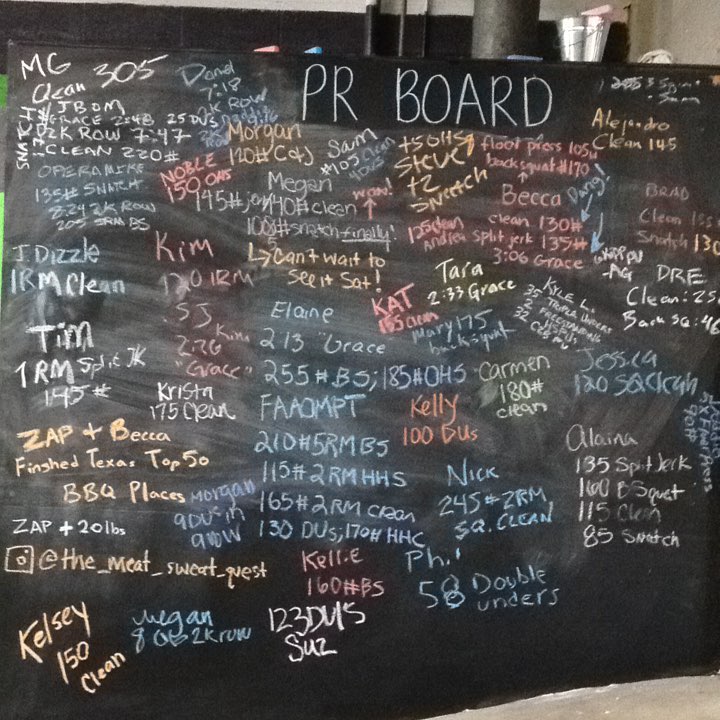 PR BOARD
MG 305
Clean
JBOM
GRACE 2:48 25 DUs
2K ROW 7:47
CLEAN 220#
SNATCH
7:18
2K ROW
Morgan
120# C&J
Sam
#105 Clean
Steve
+2
Snatch
floor press 105#
back squat #170
Becca
clean 130#
split jerk 135#
3:06 Grace
Dang!
125 clean
Andrea
Alejandro
Clean 145
BRAD
Clean
Snatch 130
DRE
Clean: 25
Back sq: 46
OPERAMIKE
135# SNATCH
8:24 2K ROW
205 5RM BS
NOBLE
150 OHS
Megan
145# jerk 140# clean
108# snatch-finally!
woow!
Can't wait to
see it Sat!
J. Dizzle
1RM Clean
Kim
120 1RM
Tara
2:33 Grace
KAT
155 Clean
Mary 175
back squat
KYLE L.
35 TRIPLE UNDERS
2 FREESTANDING
HSPU
32
SJ
2:26
"Grace"
Kim
Tim
1RM Split JK
145#
Krista
175 Clean
Elaine
2:13 "Grace"
255# BS; 185# OHS
FAAOMPT
210# 5RM BS
115# 2RM HHS
165# 2RM Clean
130 DUs; 170# HHC
Carmen
180#
clean
Jessica
120 SQ Clean
Kelly
100 DUs
ZAP + Becca
Finshed Texas Top 50
BBQ Places
ZAP + 20 lbs
@the_meat_sweat_quest
Morgan
9 DUs in
a row
Nick
245# 2RM
SQ. CLEAN
Alaina
135 Split Jerk
160 BSquat
115 Clean
85 Snatch
Kellie
160# BS
Phil
58 Double
unders
Kelsey
150
Clean
Megan
2K row
123 DU's
Suz